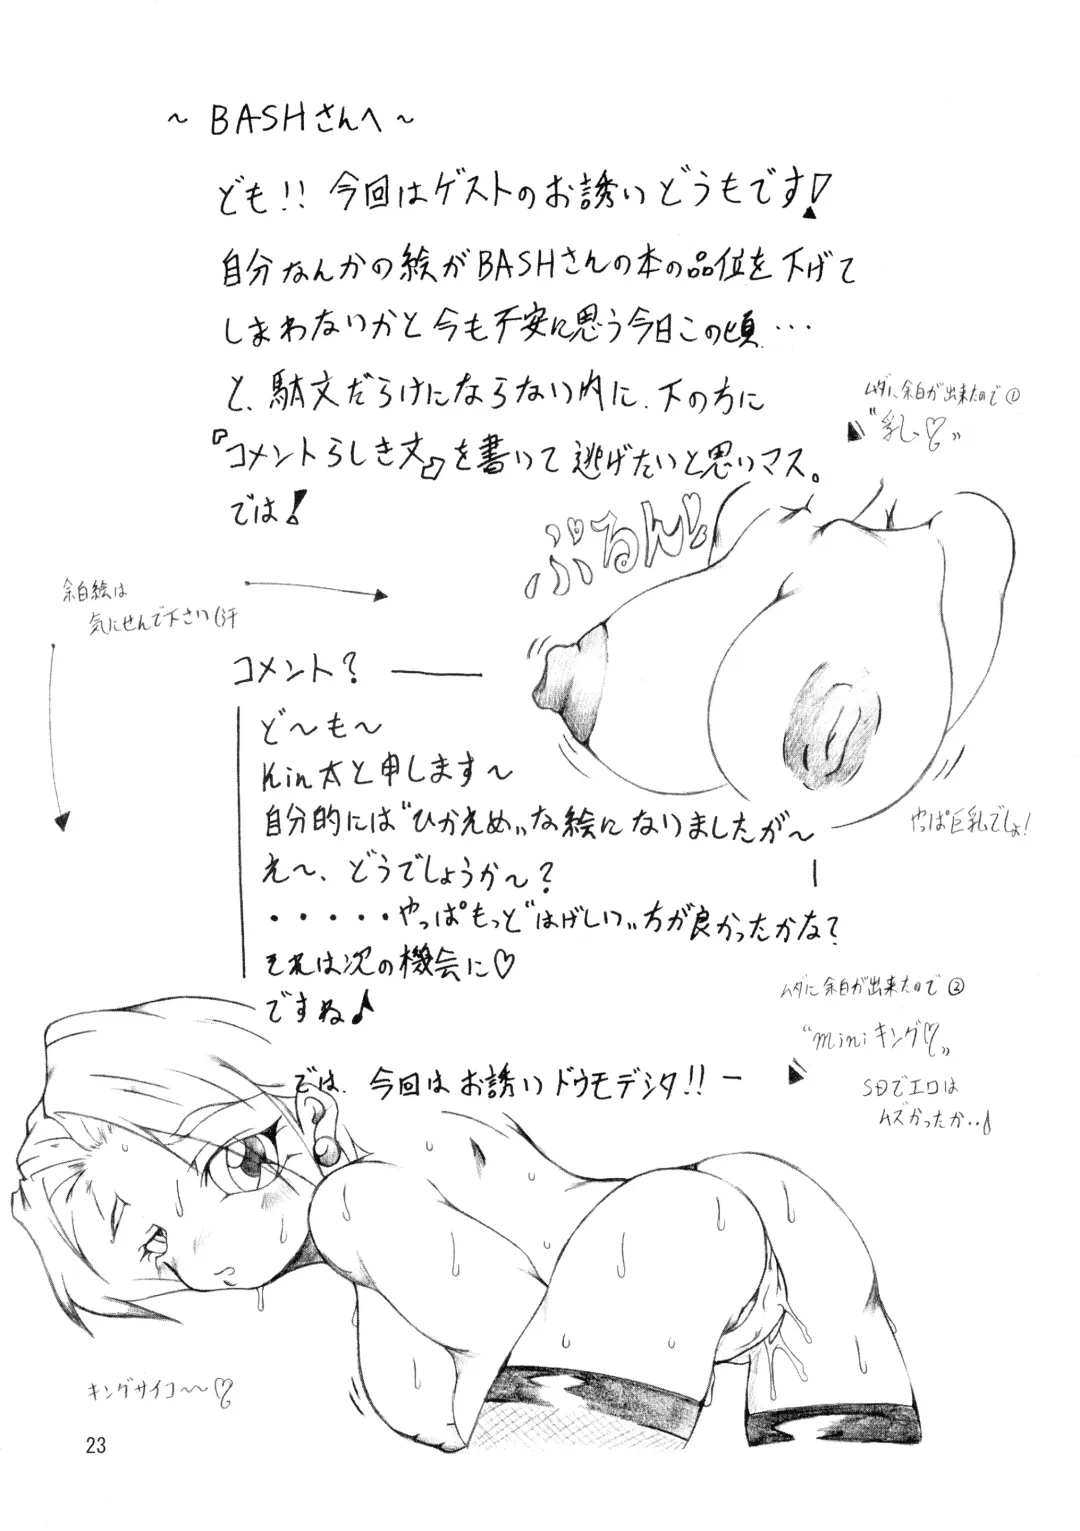 ～ BASHさんへ ～
ども!! 今回はゲストのお誘いどうもです!
自分なんかの絵がBASHさんの本の品位を下げて
しまわないかと今も不安に思う今日この頃…
と、駄文だらけにならない内に、下の方に
『コメントらしき文』を書いて逃げたいと思いマス。
では!
ムダに余白が出来たので①
"乳♡"
ぷるんっ♡
余白絵は
気にせんで下さい(汗
コメント?
ど～も～
Kin太と申します～
自分的には"ひかえめ"な絵になりましたが～
え～、どうでしょうか～?
・・・・・やっぱもっと"はげしい"方が良かったかな?
それは次の機会に♡
ですね♪
やっぱ巨乳でしょ!
では、今回はお誘いドウモデシタ!! ー
ムダに余白が出来たので②
"miniキング♡"
SDでエロは
ムズかったか‥♪
キングサイコ～～♡
23